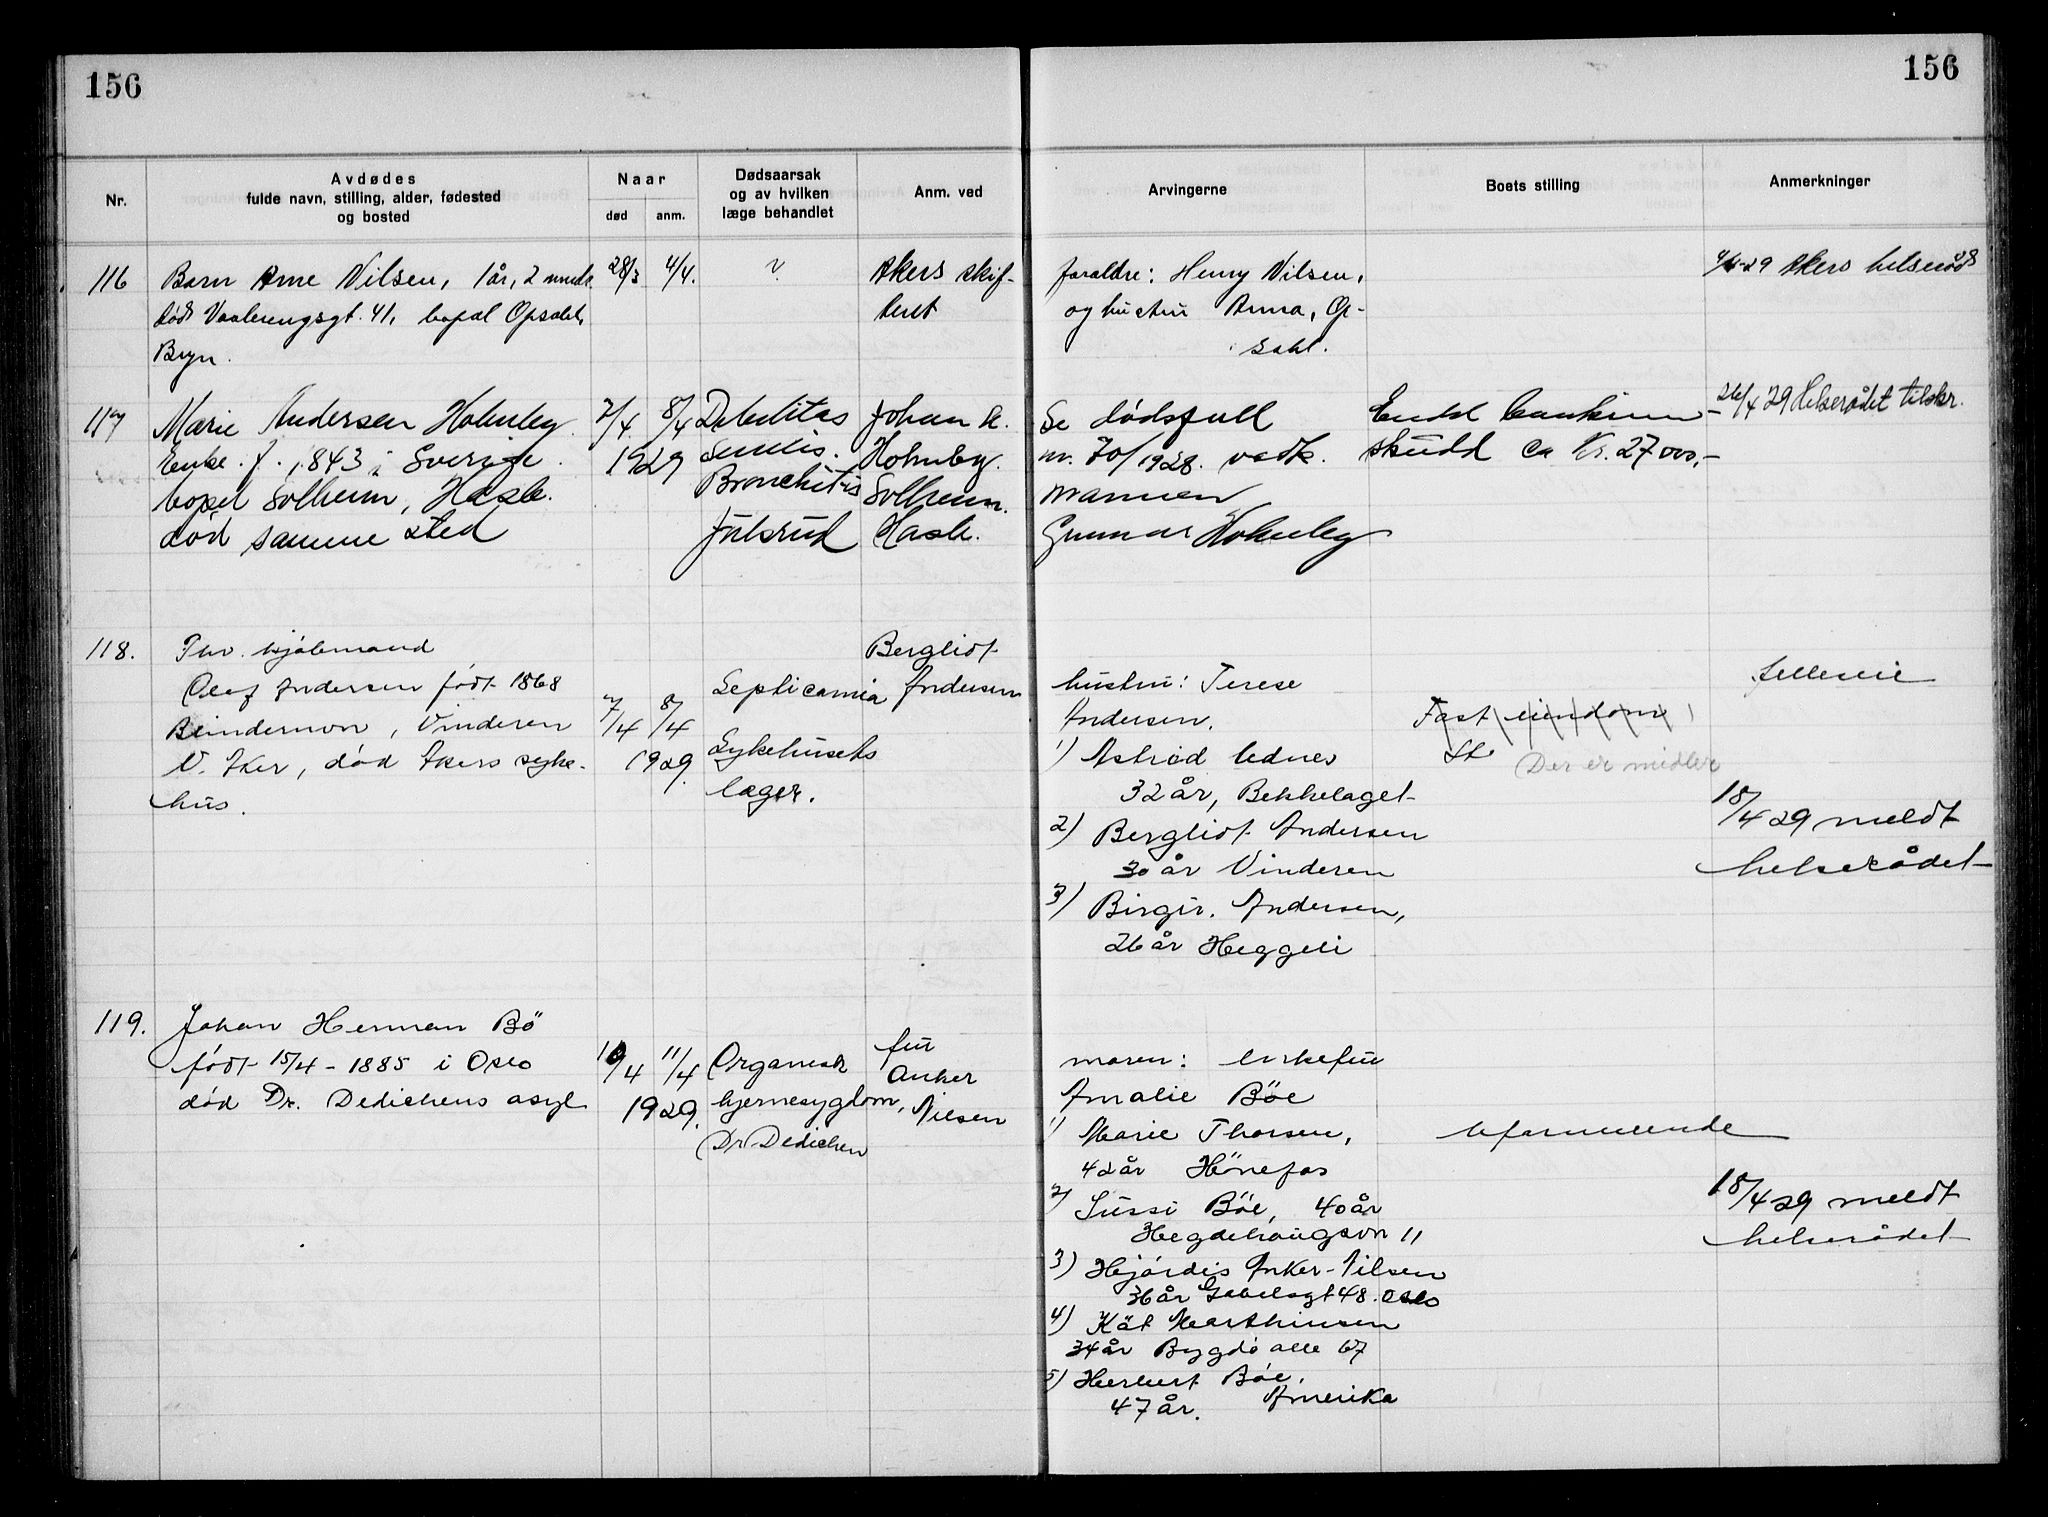 156
156
Nr.
Avdødes
fulde navn, stilling, alder, fødested
og bosted
Naar
død
anm.
Dødsaarsak
og av hvilken
læge behandlet
Anm. ved
Arvingerne
Boets stilling
Anmerkninger
116
Barn Arne Nilsen, 1 år, 2 mnedr.
død Vaalerengsgt. 41, bopæl Opsahl,
Bryn.
28/3
4/4.
?
Akers skif-
teret
foraldre: Henry Nilsen,
og hustru Anna, Op-
sahl.
Akers helseråd
117
Marie Andersen Holmby
Enke. f. 1843 i Sverige.
bopel Solheim, Hasle.
død samme sted
7/4
8/4
1929
Debilitas
senilis.
Bronchitis
Julsrud
Johan A.
Holmby.
Solheim.
Hasle.
Se dødsfall
nr. 70/1928. vedk.
mannen
Gunnar Holmby
Endel bankinn-
skudd ca Kr. 27000,-
26/4 29 Helserådet tilskr.
118.
Olaf Andersen født 1868
Blindernvn, Vinderen
V. Aker, død Akers syke-
hus.
7/4
8/4
1929.
Septicamia
Sykehusets
læger.
Bergliot
Andersen
hustru: Terese
Andersen.
1) Astrid Ednes
32 år, Bekkelaget
2) Bergliot Andersen
30 år Vinderen
3) Birgir. Andersen,
26 år Heggeli
Fast eiendom
Der er midler
Felleseie
18/4 29 meldt
helserådet
119.
Johan Herman Bö
født 15/4 - 1885 i Oslo
død Dr. Dedichens asyl
10/4
11/4
1929.
Organisk
hjernesygdom,
Dr Dedichen
fru
Anker
Nilsen
moren: enkefru
Amalie Böe
1) Marie Thorsen,
42 år Hönefos
2) Sussi Böe, 40 år
Hegdehaugsvn 11
3) Hjördis Anker-Nilsen
36 år Gabelsgt 48. Oslo
4) Kät Marthinsen
34 år Bygdö alle 67
5) Herbert Böe,
47 år. Amerika
Uformuende
18/4 29 meldt
helserådet